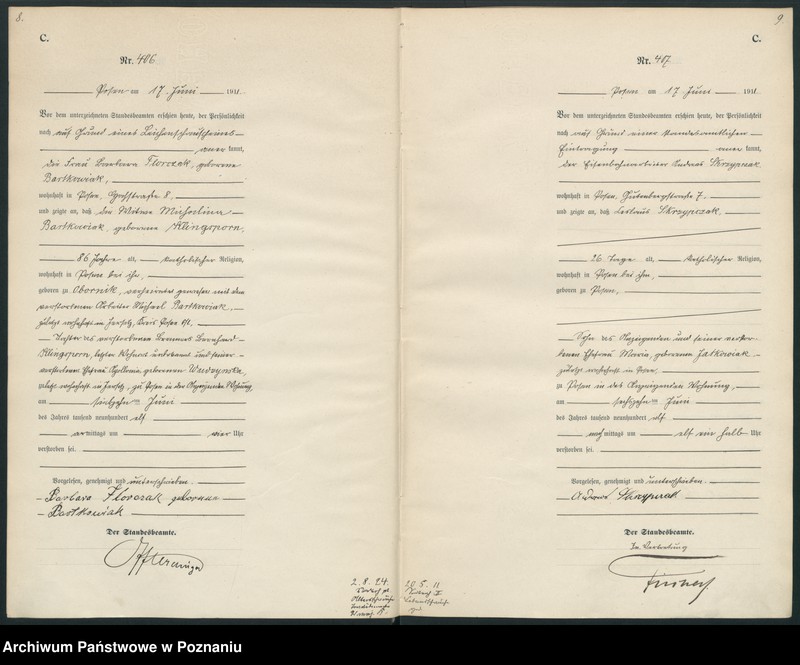 8.
C.
Nr. 406
Posen am 17. Juni 1911.
Vor dem unterzeichneten Standesbeamten erschien heute, der Persönlichkeit
nach auf Grund eines Leichenschauscheines
kannt,
die Frau Barbara Florczak, geborene
Bartkowiak,
wohnhaft in Posen, 8,
und zeigte an, daß die Witwe Michalina
Bartkowiak, geborene Klingsporn,
86 Jahre alt, katholischer Religion,
wohnhaft in Posen bei ihr,
geboren zu Obornik, verheiratet gewesen mit dem
verstorbenen Arbeiter Michael Bartkowiak,
zuletzt wohnhaft in Jersitz, Kreis Posen
Tochter des verstorbenen Bernhard
Klingsporn, letzter Wohnort unbekannt und seiner
verstorbenen Ehefrau geborenen
zuletzt wohnhaft in Jersitz, zu Posen in der Anzeigenden Wohnung,
am siebzehnten Juni
des Jahres tausend neunhundert elf
vormittags um vier Uhr
verstorben sei.
Vorgelesen, genehmigt und unterschrieben.
Barbara Florczak geborene
Bartkowiak
Der Standesbeamte.
2. 8. 24.
9.
C.
Nr. 407
Posen am 17. Juni 1911.
Vor dem unterzeichneten Standesbeamten erschien heute, der Persönlichkeit
nach auf Grund einer standesamtlichen
Eintragung kannt,
der Eisenbahnarbeiter Andreas Skrzypczak
wohnhaft in Posen, Gutenbergstraße 7.
und zeigte an, daß Skrzypczak,
26 Tage alt, katholischer Religion,
wohnhaft in Posen bei ihm,
geboren zu Posen,
Sohn des Anzeigenden und seiner verstor-
benen Ehefrau Maria, geborenen Jatkowiak
zuletzt wohnhaft in Posen,
zu Posen in des Anzeigenden Wohnung,
am sechzehnten Juni
des Jahres tausend neunhundert elf
nachmittags um elf ein halb Uhr
verstorben sei.
Vorgelesen, genehmigt und unterschrieben.
Andreas Skrzypczak
Der Standesbeamte.
In Vertretung
20. 5. 11
Archiwum Państwowe w Poznaniu